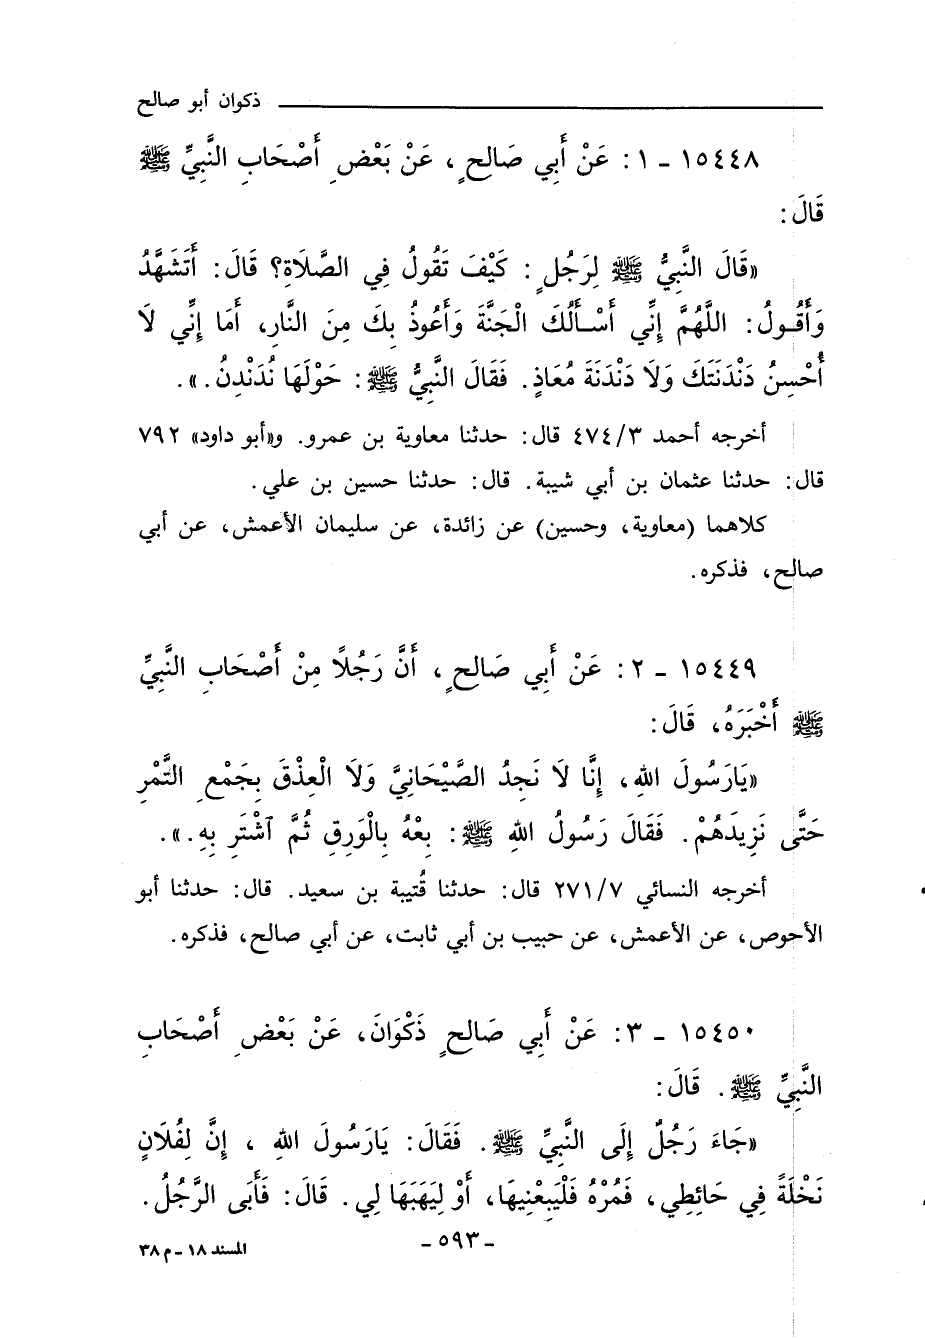 ذكوان أبو صالح
١٥٤٤٨ - ١: عَنْ أَبِي صَالِحٍ، عَنْ بَعْضِ أَصْحَابِ النَّبِيِّ ﷺ
قَالَ:
«قَالَ النَّبِيُّ ﷺ لِرَجُلٍ: كَيْفَ تَقُولُ فِي الصَّلَاةِ؟ قَالَ: أَتَشَهَّدُ
وَأَقُولُ: اللَّهُمَّ إِنِّي أَسْأَلُكَ الْجَنَّةَ وَأَعُوذُ بِكَ مِنَ النَّارِ، أَمَا إِنِّي لَا
أُحْسِنُ دَنْدَنَتَكَ وَلَا دَنْدَنَةَ مُعَاذٍ. فَقَالَ النَّبِيُّ ﷺ: حَوْلَهَا نُدَنْدِنُ.».
أخرجه أحمد ٤٧٤/٣ قال: حدثنا معاوية بن عمرو. و«أبو داود» ٧٩٢
قال: حدثنا عثمان بن أبي شيبة. قال: حدثنا حسين بن علي.
كلاهما (معاوية، وحسين) عن زائدة، عن سليمان الأعمش، عن أبي
صالح، فذكره.
١٥٤٤٩ - ٢: عَنْ أَبِي صَالِحٍ، أَنَّ رَجُلًا مِنْ أَصْحَابِ النَّبِيِّ
ﷺ أَخْبَرَهُ، قَالَ:
«يَارَسُولَ اللهِ، إِنَّا لَا نَجِدُ الصَّيْحَانِيَّ وَلَا الْعِذْقَ بِجَمْعِ التَّمْرِ
حَتَّى نَزِيدَهُمْ. فَقَالَ رَسُولُ اللهِ ﷺ: بِعْهُ بِالْوَرِقِ ثُمَّ ٱشْتَرِ بِهِ.».
أخرجه النسائي ٢٧١/٧ قال: حدثنا قُتيبة بن سعيد. قال: حدثنا أبو
الأحوص، عن الأعمش، عن حبيب بن أبي ثابت، عن أبي صالح، فذكره.
١٥٤٥٠ - ٣: عَنْ أَبِي صَالِحٍ ذَكْوَانَ، عَنْ بَعْضِ أَصْحَابِ
النَّبِيِّ ﷺ. قَالَ:
«جَاءَ رَجُلٌ إِلَى النَّبِيِّ ﷺ. فَقَالَ: يَارَسُولَ اللهِ، إِنَّ لِفُلَانٍ
نَخْلَةً فِي حَائِطِي، فَمُرْهُ فَلْيَبِعْنِيهَا، أَوْ لِيَهَبَهَا لِي. قَالَ: فَأَبَى الرَّجُلُ.
- ٥٩٣ -
المسند ١٨ - م ٣٨